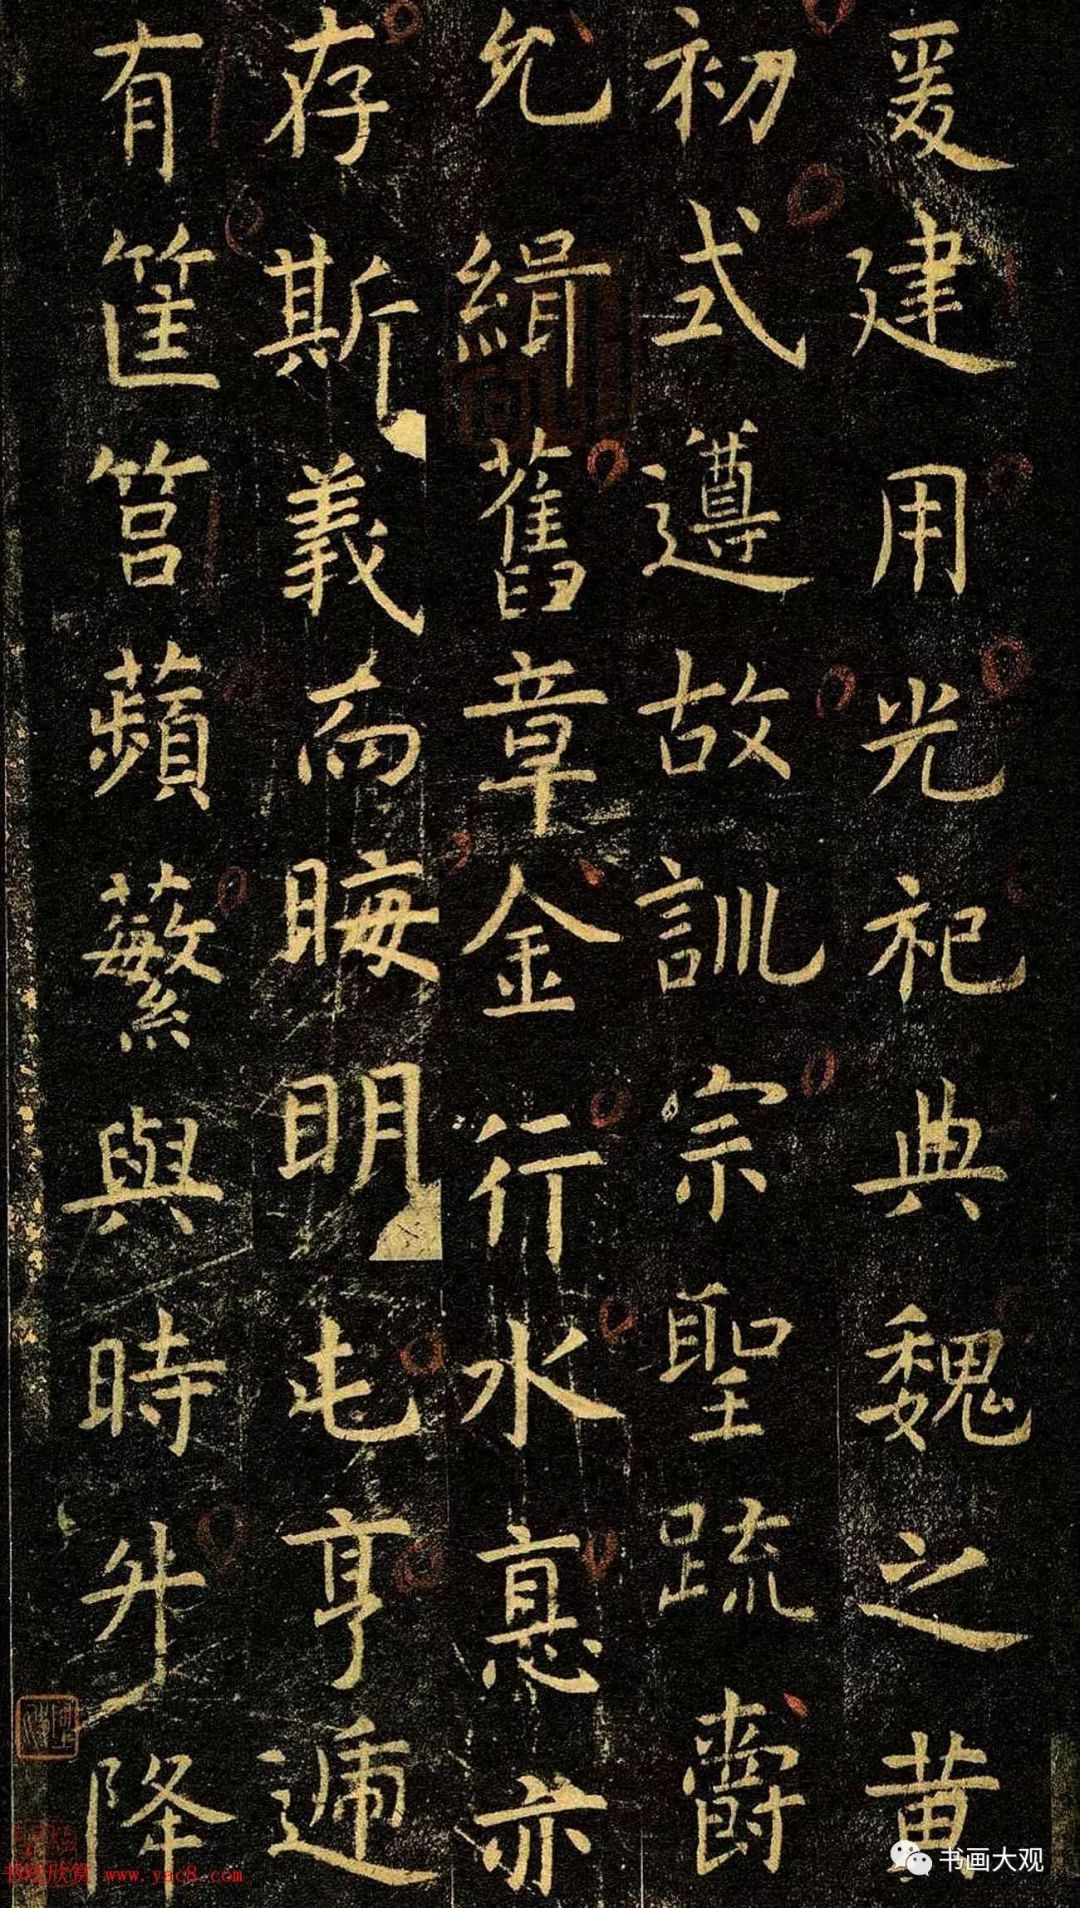 爰建用光祀典魏之黄
初式遵故訓宗聖疏爵
允緝舊章金行水悳亦
存斯義而晦明屯亨遞
有筐筥蘋蘩與時升降
书画大观
书法欣赏 www.yac8.com